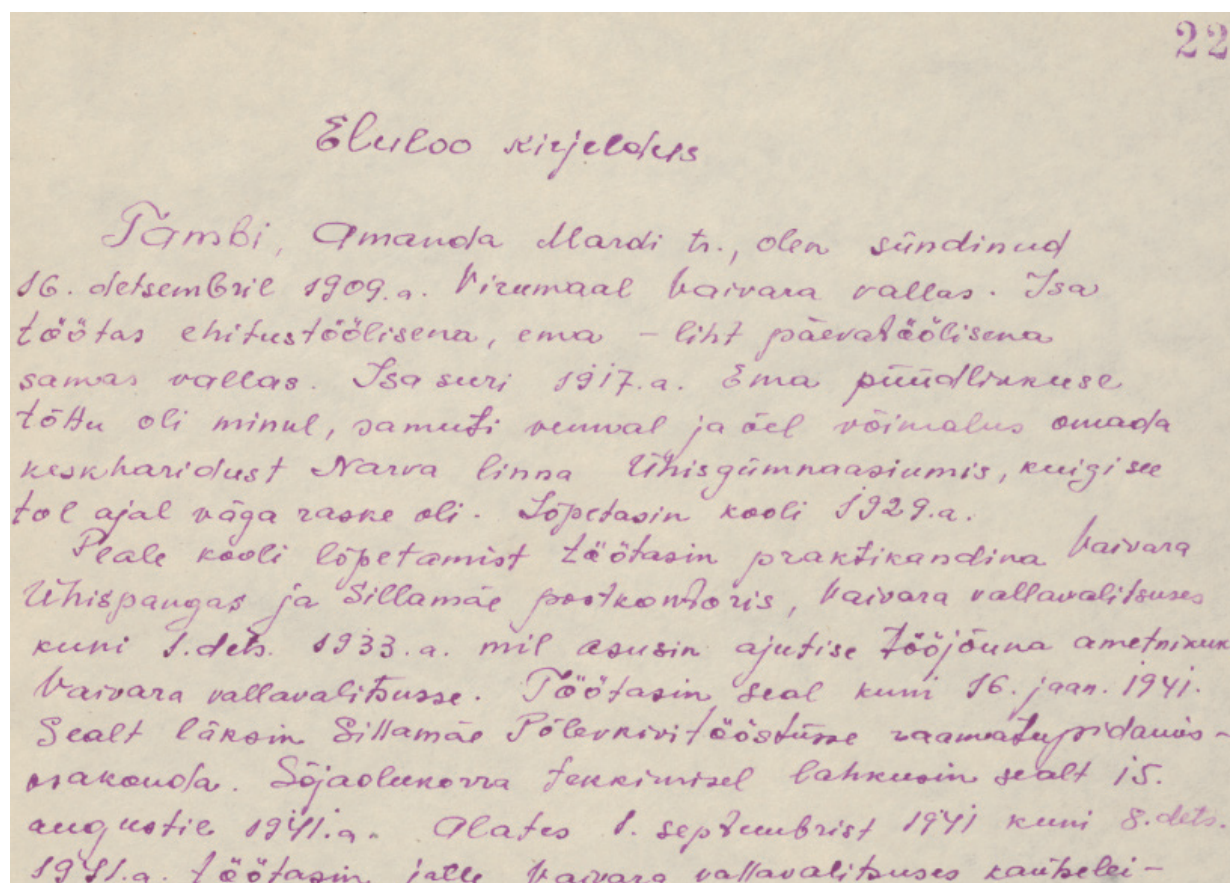 22
Eluloo kirjeldus
Tambi, Amanda Mardi tr., olen sündinud
16. detsembril 1909.a. Virumaal Vaivara vallas. Isa
töötas ehitustöölisena, ema - liht päevatöölisena
samas vallas. Isa suri 1917.a. Ema püüdlikkuse
tõttu oli minul, samuti vennal ja õel võimalus omada
keskharidust Narva linna Ühisgümnaasiumis, kuigi see
tol ajal väga raske oli. Lõpetasin kooli 1929.a.
Peale kooli lõpetamist töötasin praktikandina Vaivara
Ühispangas ja Sillamäe postkontoris, Vaivara vallavalitsuses
kuni 1. dets. 1933.a. mil asusin ajutise tööjõuna ametnikuk
Vaivara vallavalitsusse. Töötasin seal kuni 16. jaan. 1941.
Sealt läksin Sillamäe Põlevkivitööstusse raamatupidamis-
osakonda. Sõjaolukorra tekkimisel lahkusin sealt 15.
augustil 1941.a. Alates 1. septembrist 1941 kuni 8. dets.
1941.a. töötasin jälle Vaivara vallavalitsuses kantselei-